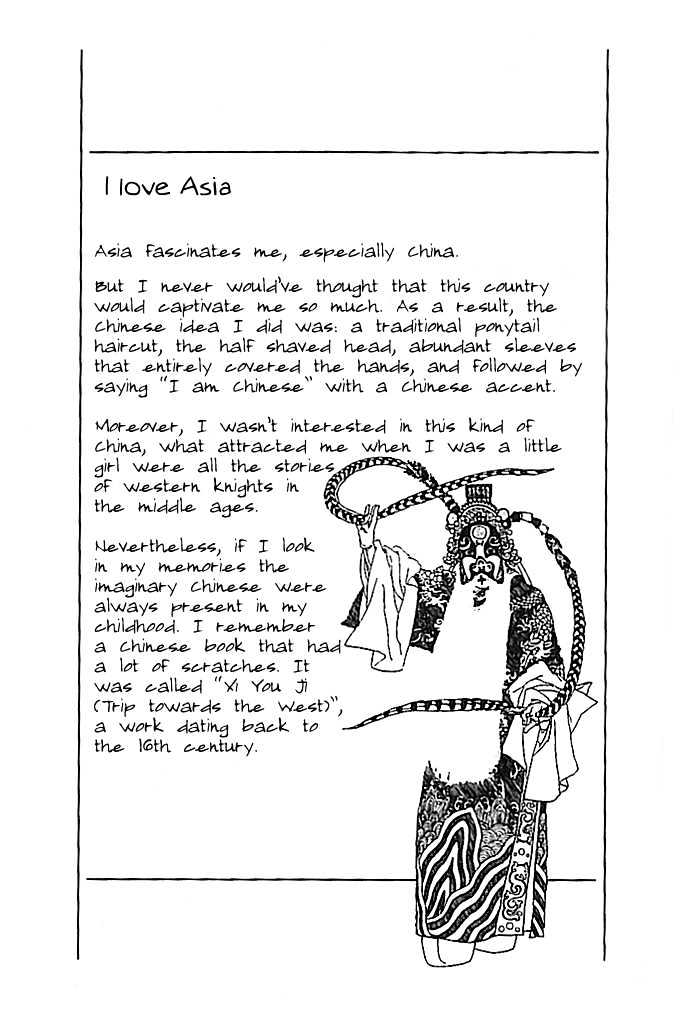 I love Asia
Asia fascinates me, especially China.
But I never would've thought that this country
would captivate me so much. As a result, the
Chinese idea I did was: a traditional ponytail
haircut, the half shaved head, abundant sleeves
that entirely covered the hands, and followed by
saying "I am Chinese" with a Chinese accent.
Moreover, I wasn't interested in this kind of
China, what attracted me when I was a little
girl were all the stories
of western knights in
the middle ages.
Nevertheless, if I look
in my memories the
imaginary Chinese were
always present in my
childhood. I remember
a Chinese book that had
a lot of scratches. It
was called "Xi You Ji
(Trip towards the West)",
a work dating back to
the 16th century.